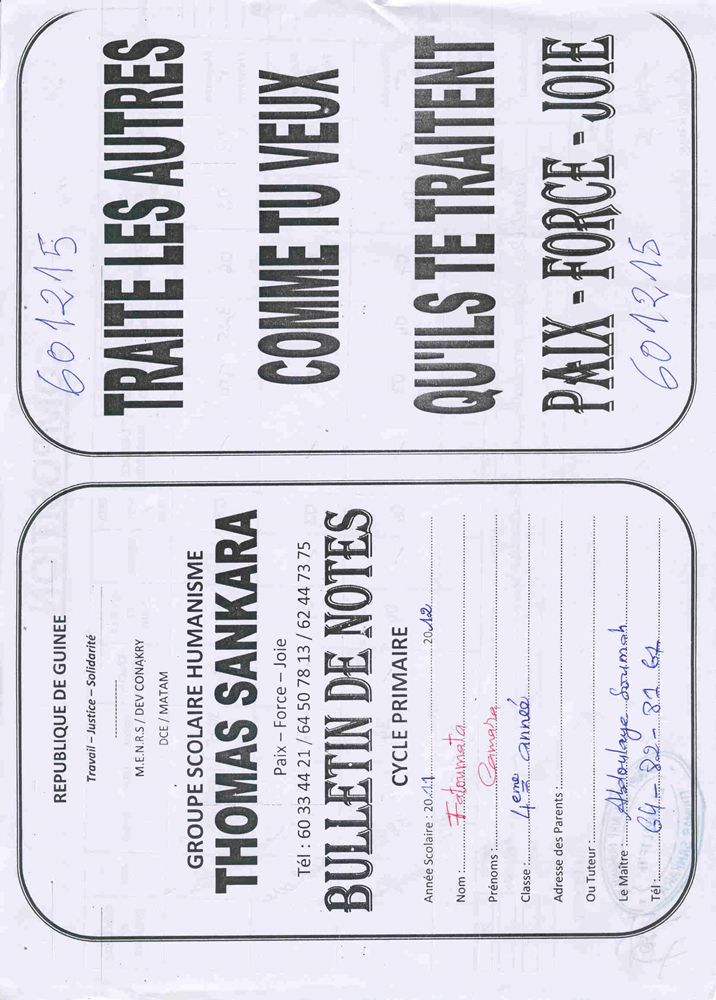 REPUBLIQUE DE GUINEE
Travail – Justice – Solidarité
M.E.N.R.S / DEV CONAKRY
DCE / MATAM
GROUPE SCOLAIRE HUMANISME
THOMAS SANKARA
Paix – Force – Joie
Tél : 60 33 44 21 / 64 50 78 13 / 62 44 73 75
BULLETIN DE NOTES
CYCLE PRIMAIRE
Année Scolaire : 2011 2012
Nom : Fatoumata
Prénoms : Camara
Classe : 4eme année
Adresse des Parents :
Ou Tuteur :
Le Maître : Abdoulaye Soumah
Tél : 64-82-81 67
601215
TRAITE LES AUTRES
COMME TU VEUX
QU'ILS TE TRAITENT
PAIX - FORCE - JOIE
601215